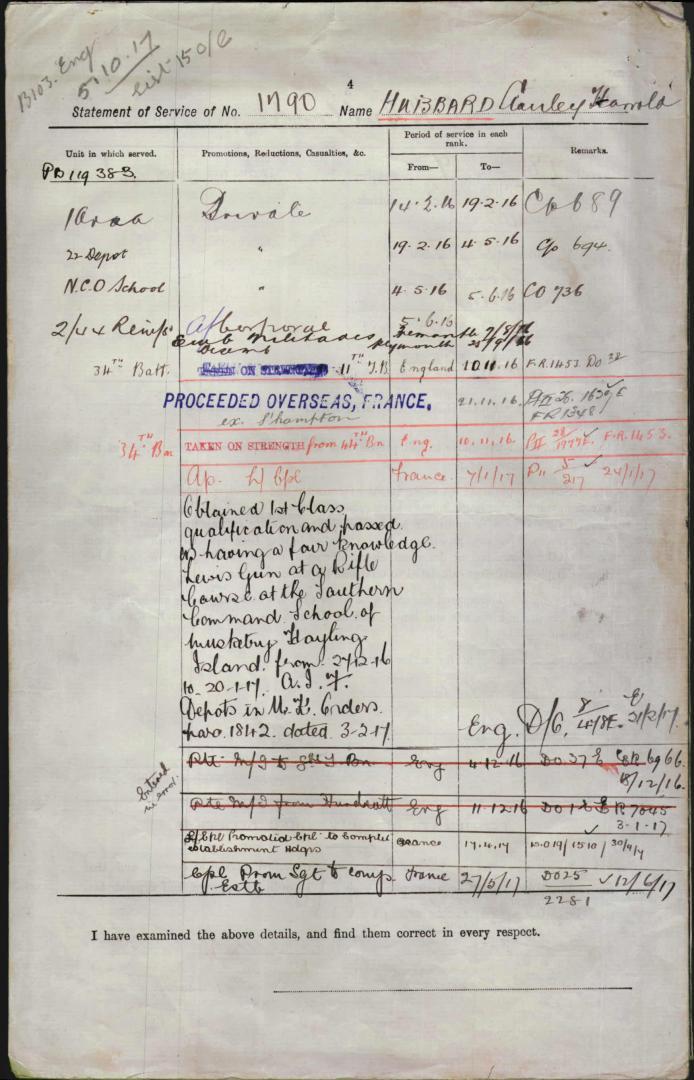 B103. Eng
5.10.17
list 150/6
4
Statement of Service of No. 1790 Name HUBBARD Harrold
Unit in which served.
Promotions, Reductions, Casualties, &c.
Period of service in each rank.
From—
To—
Remarks.
Pp 119 383.
Private 14.2.16 19.2.16 Cp 689
22 Depot " 19.2.16 4.5.16 Cp 694.
N.C.O School " 4.5.16 5.6.16 CO 736
2/44 Reinfs A/Corporal 5.6.16
Emb Miltiades Fremantle 7/8/16
Disemb Plymouth 9/16
34TH Batt. TAKEN ON STRENGTH 11TH T.B England 10.11.16 F.R.1453. DO
PROCEEDED OVERSEAS, FRANCE. 21.11.16.
ex. S'hampton FR1348
34TH Bn TAKEN ON STRENGTH from 44TH Bn Eng. 10.11.16. F.R.1453.
Ap. L/Cpl France. 7/1/17 P11 5/217 ✓ 24/1/17
Obtained 1st Class
qualification and passed
as having a fair knowledge
Lewis Gun at a Rifle
Course at the Southern
Command School of
Musketry Hayling
Island. from 27-12-16
to 20-1-17. A.I.F.
Depots in U.K. Orders.
para. 1842. dated. 3-2-17. Eng. D/C. 8/ 21/2/17.
Entered
in error.
Pte M/I to Bn Eng 4.12.16 DO 37 6966
18/12/16.
Pte M/I from Hurdcott Eng 11.12.16 DO1 7045
3-1-17
L/Cpl Promoted Cpl to Complete
establishment Hdqrs France 17.4.17 ✓ 30/4/17
Cpl Prom Sgt to comp France 27/5/17 DO25 ✓ 12/6/17
Estb 2281
I have examined the above details, and find them correct in every respect.